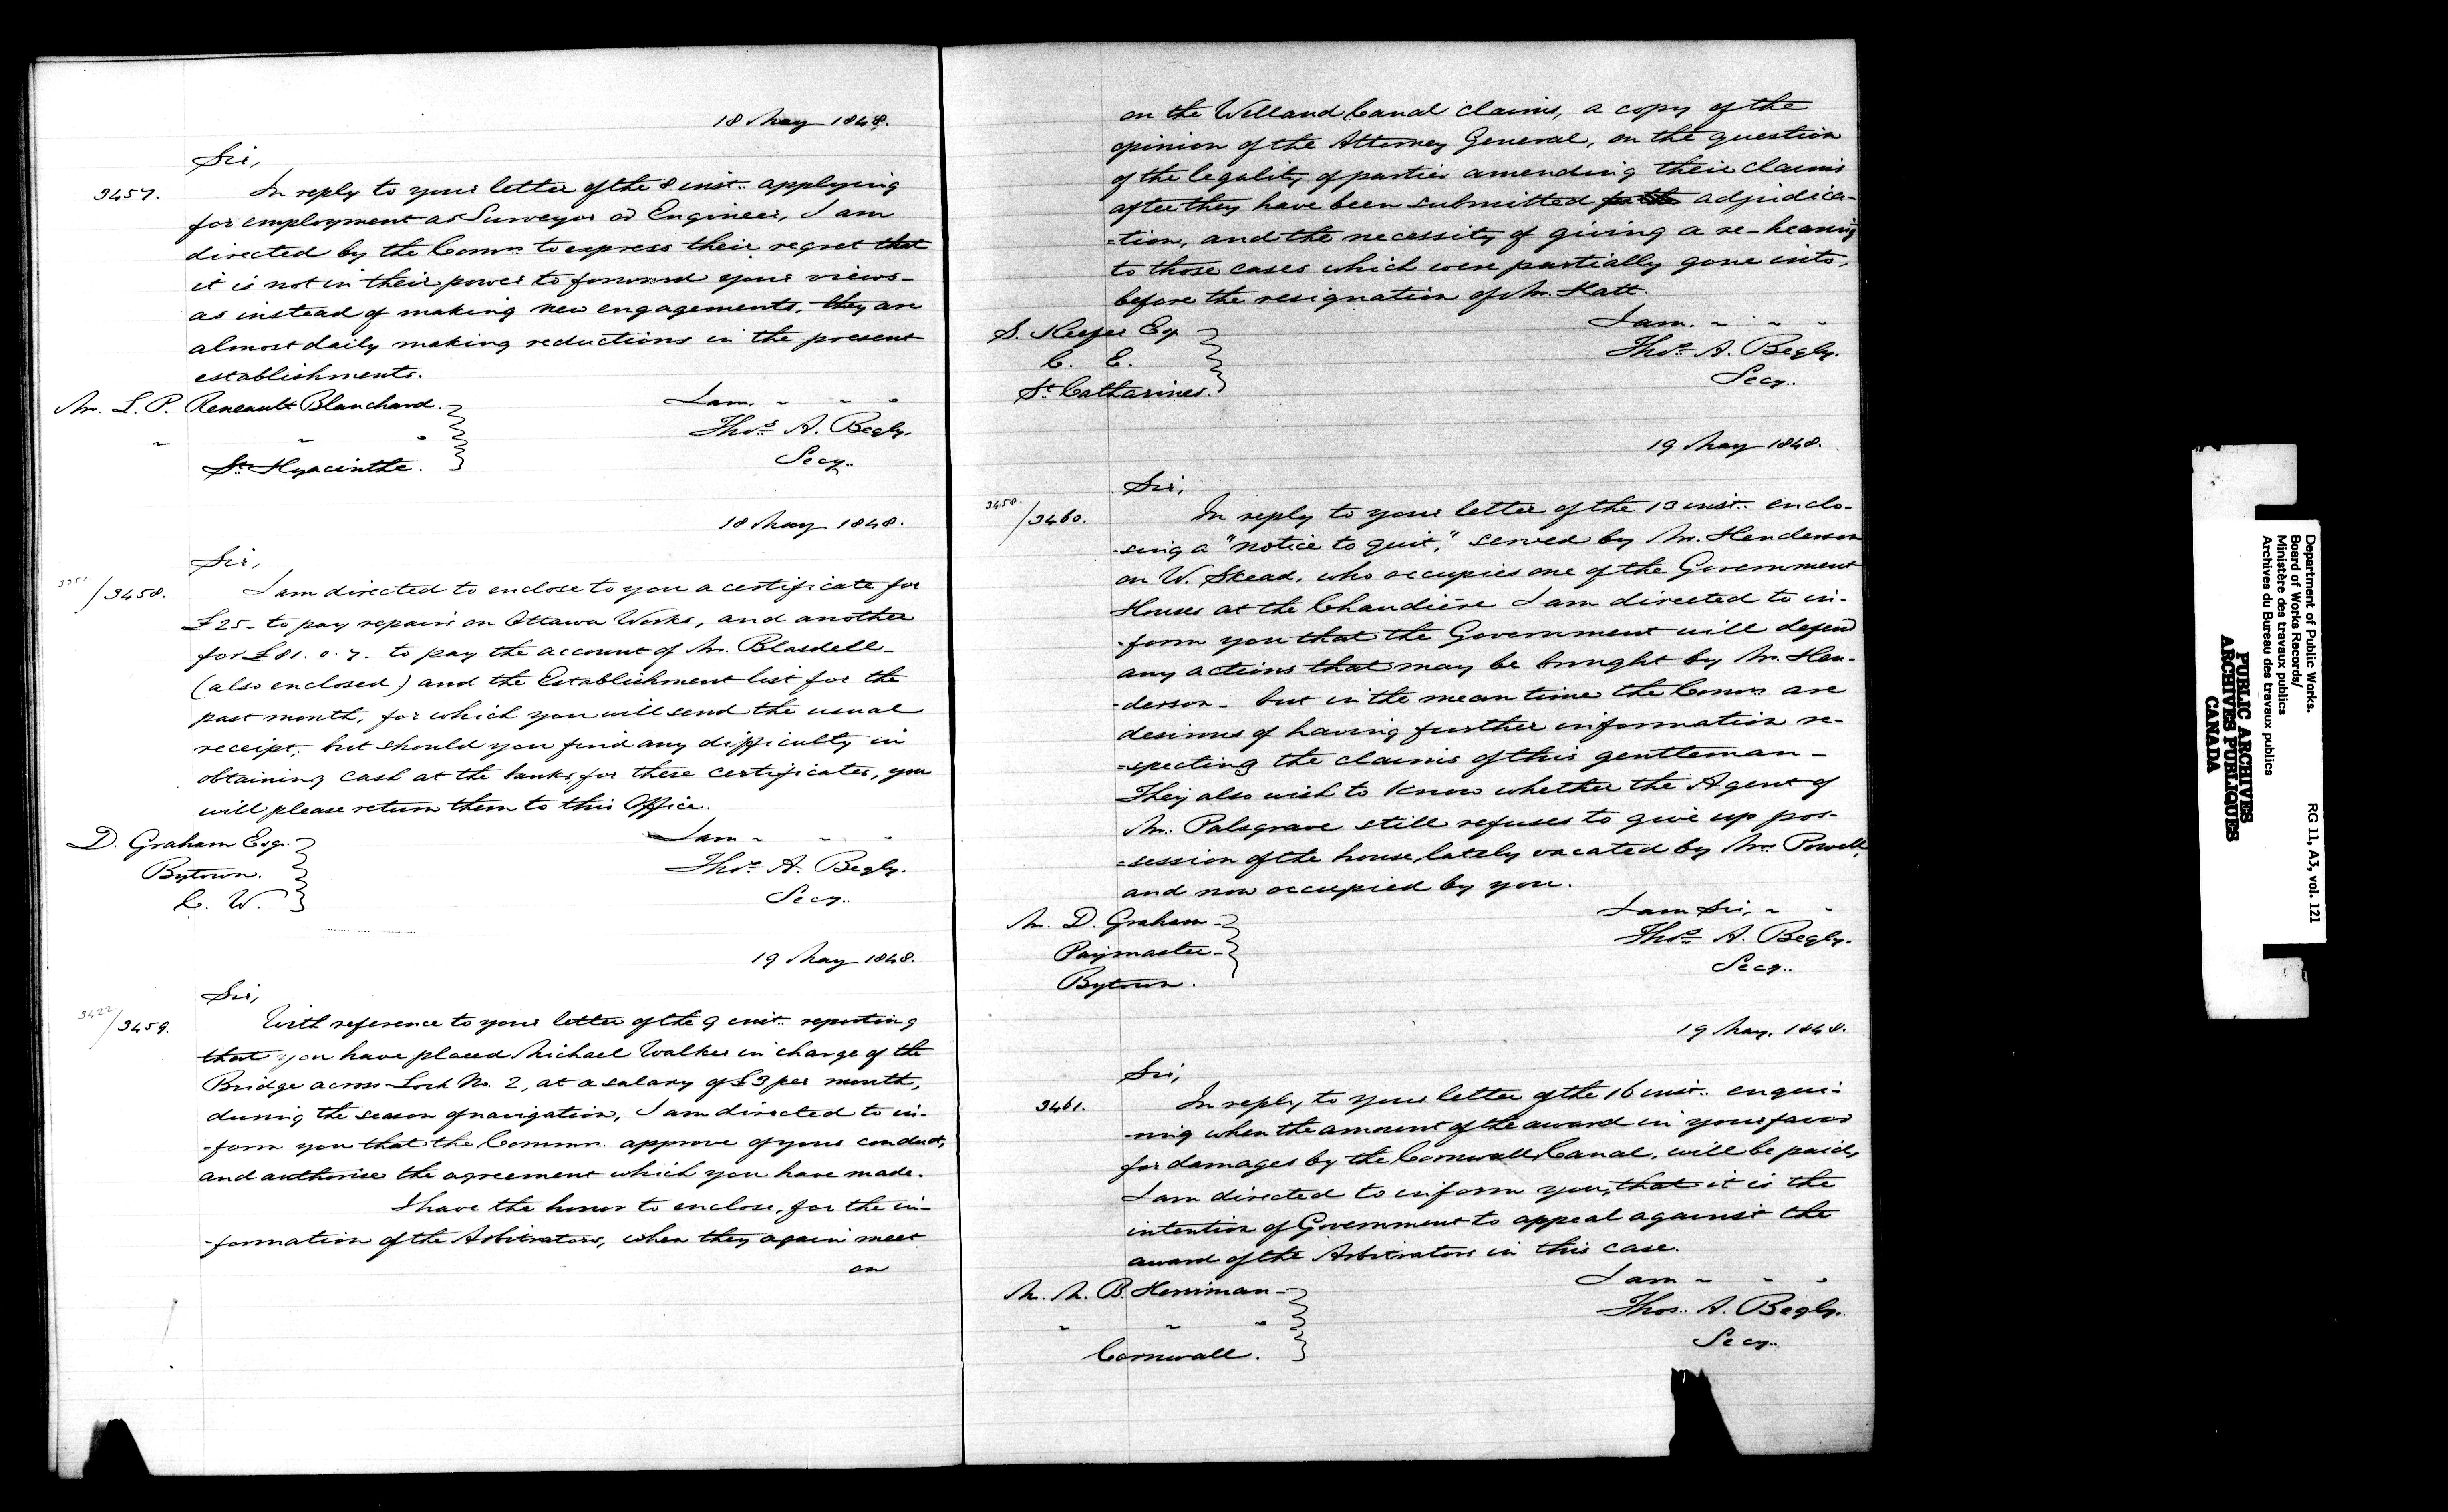 18 May 1848.
Sir,
3457.
In reply to your letter of the 8 inst. applying
for employment as Surveyor or Engineer, I am
directed by the Comrs. to express their regret that
it is not in their power to forward your views -
as instead of making new engagements, they are
almost daily making reductions in the present
establishments.
Mr. L. P. Reneault Blanchard.
" " "
St. Hyacinthe.
I am. " " "
Thos. A. Begly.
Secy.
18 May 1848.
Sir,
/3458.
I am directed to enclose to you a certificate for
£25 - to pay repairs on Ottawa Works, and another
for £81. 0. 7. to pay the account of Mr. Blasdell -
(also enclosed) and the Establishment list for the
past month, for which you will send the usual
receipt; but should you find any difficulty in
obtaining cash at the banks, for these certificates, you
will please return them to this Office.
D. Graham Esqr.
Bytown.
C. W.
I am " " "
Thos. A. Begly.
Secy.
19 May 1848.
Sir,
3422/3459.
With reference to your letter of the 9 inst. reporting
that you have placed Michael Walker in charge of the
Bridge across Lock No. 2, at a salary of £3 per month,
during the season of navigation, I am directed to in-
-form you that the Commrs. approve of your conduct,
and authorise the agreement which you have made.
I have the honor to enclose, for the in-
-formation of the Arbitrators, when they again meet
on
on the Welland Canal claims, a copy of the
opinion of the Attorney General, on the question
of the legality of parties amending their claims
after they have been submitted adjudica-
-tion, and the necessity of giving a re-hearing
to those cases which were partially gone into,
before the resignation of Mr. Hatt.
I am. " " "
Thos. A. Begly.
Secy.
S. Keefer Esq
C. E.
St. Catharines.
19 May 1848.
Sir,
3458/3460.
In reply to your letter of the 13 inst. enclo-
-sing a "notice to quit," served by Mr. Henderson
on W. Skead, who occupies one of the Government
Houses at the Chaudière I am directed to in-
-form you that the Government will defend
any actions that may be brought by Mr. Hen-
-derson - but in the mean time the Comrs are
desirous of having further information re-
-specting the claims of this gentleman -
They also wish to know whether the Agent of
Mr. Palsgrave still refuses to give up pos-
-session of the house, lately vacated by Mr. Powell,
and now occupied by you.
Mr. D. Graham -
Paymaster -
Bytown.
I am Sir, " "
Thos. A. Begly.
Secy.
19 May. 1848.
Sir,
3461.
In reply to your letter of the 16 inst. enqui-
-ring when the amount of the award in your favor
for damages by the Cornwall Canal, will be paid,
I am directed to inform you, that it is the
intention of Government to appeal against the
award of the Arbitrators in this case.
Mr. M. B. Herriman -
" " "
Cornwall.
I am " " "
Thos. A. Begly.
Secy.
Department of Public Works.
Board of Works Records/
Ministère des travaux publics
Archives du Bureau des travaux publics
RG 11, A3, vol. 121
PUBLIC ARCHIVES
ARCHIVES PUBLIQUES
CANADA